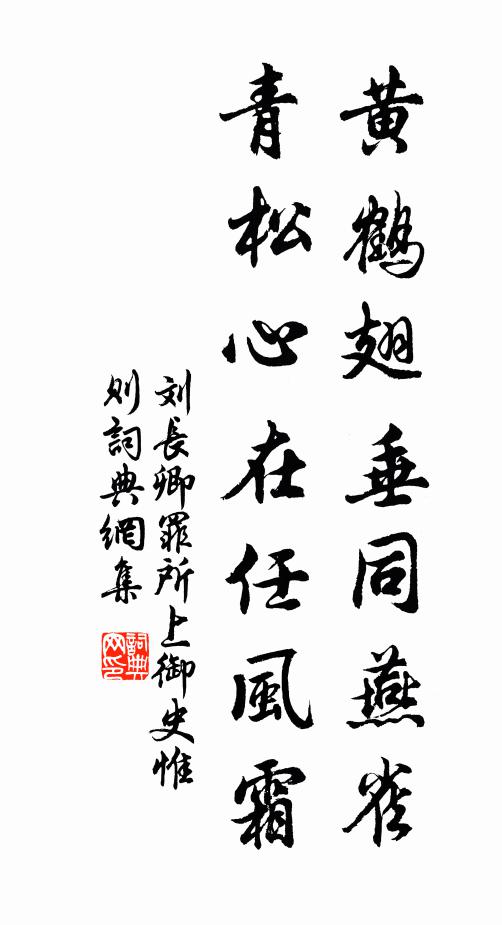 黄鶴翅垂同燕雀
青松心在任風霜
刘長卿罪所上御史惟
则詞典網集
詞典網印